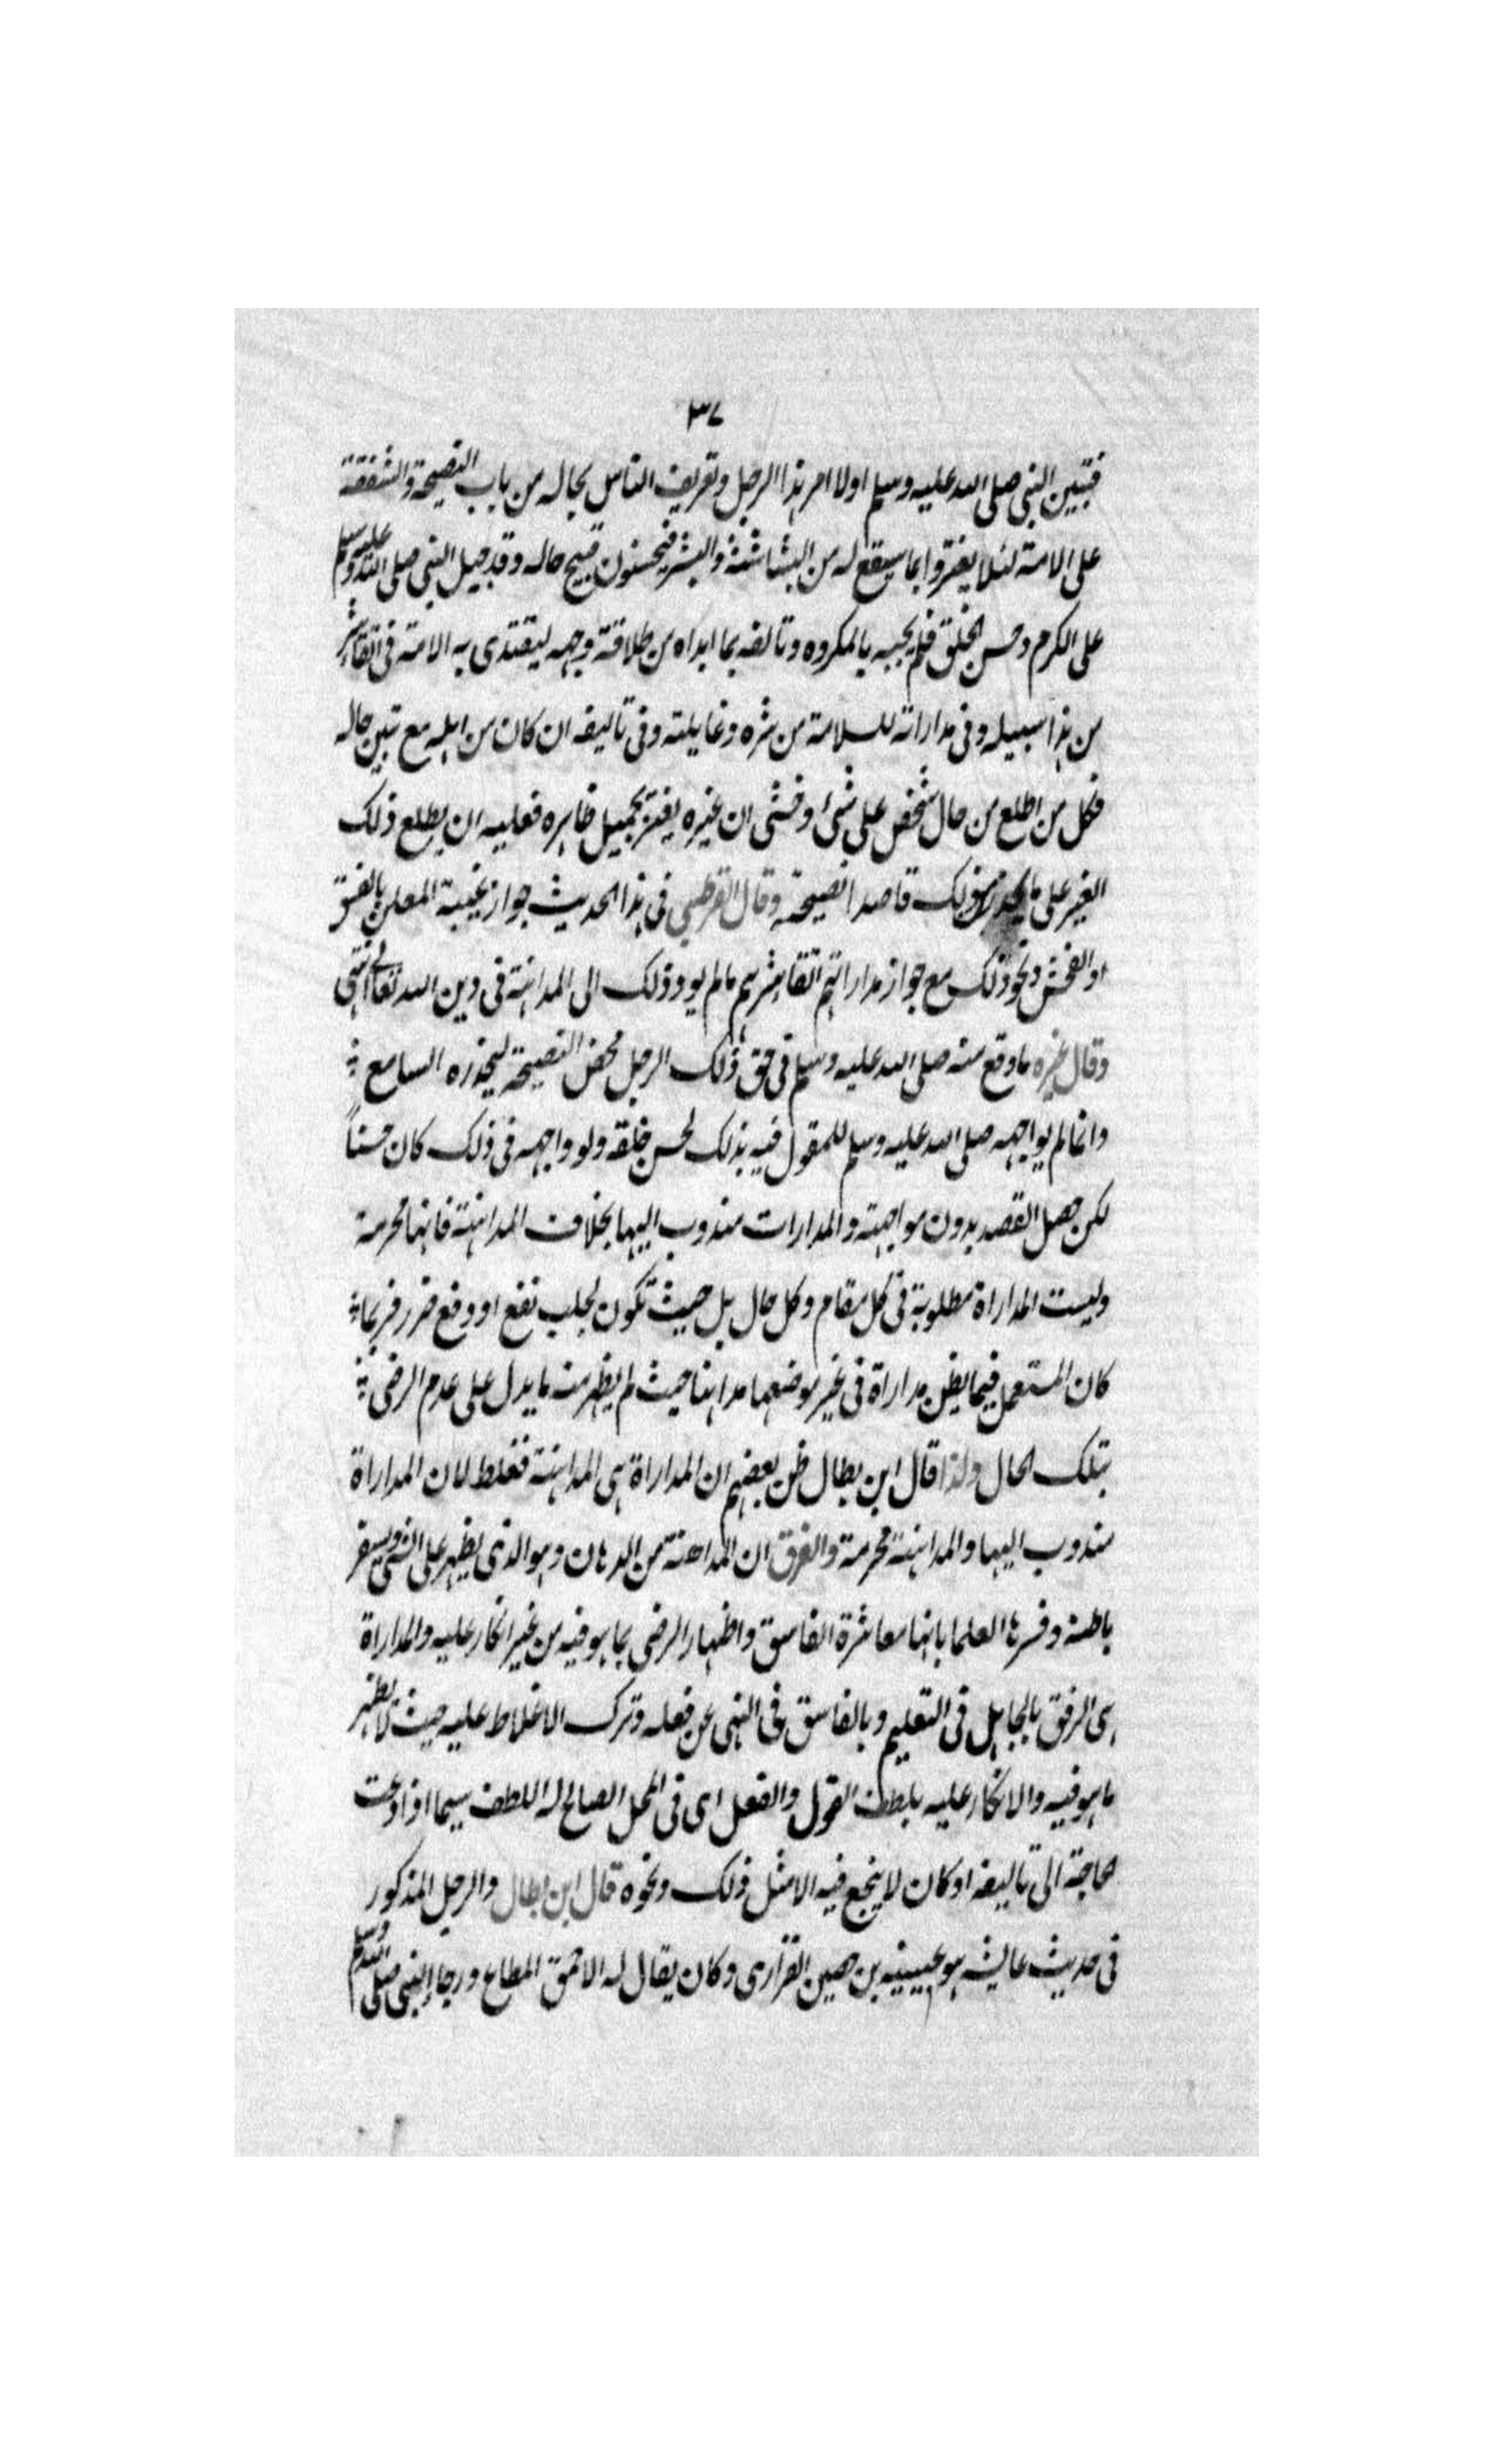 ٣٧
فتبين النبى صلى الله عليه وسلم اولا امر هذا الرجل وتعريف الناس بحاله من باب النصيحة والشفقة
على الامة لئلا يغتروا بما سيقع له من البشاشة والبشر فيحسنون قبيح حاله وقد جبل النبى صلى الله عليه وسلم
على الكرم وحسن الخلق فلم يجبه بالمكروه وتالفه بما ابداه من طلاقة وجهه ليقتدى به الامة فى اتقاء شر
من هذا سبيله وفى مداراته للسلامة من شره وغايلته وفى تاليفه ان كان من اهله مع تبين حاله
فكل من اطلع من حال شخص على شئ وخشى ان غيره يغتر بجميل ظاهره فعليه ان يطلع ذلك
الغير على ما يحذر من ذلك قاصدا نصيحته وقال القرطبي فى هذا الحديث جواز غيبة المعلن بالفسق
او الفحش ونحو ذلك مع جواز مداراتهم اتقا شرهم مالم يود ذلك الى المداهنة فى دين الله تعالى انتهى
وقال غيره ما وقع منه صلى الله عليه وسلم فى حق ذلك الرجل محض النصيحة ليحذره السامع
وانما لم يواجهه صلى الله عليه وسلم للمقول فيه بذلك لحسن خلقه ولو واجهه فى ذلك كان حسناً
لكن حصل القصد بدون مواجهته والمدارات مندوب اليها بخلاف المداهنة فانها محرمة
وليست المداراة مطلوبة فى كل مقام وكل حال بل حيث تكون لجلب نفع او دفع ضرر فربما
كان المستعمل فيما يظن مداراة فى غير موضعها مداهنا حيث لم يظهر منه ما يدل على عدم الرضى
بتلك الحال ولذا قال ابن بطال ظن بعضهم ان المداراة هى المداهنة فغلط لان المداراة
مندوب اليها والمداهنة محرمة والفرق ان المداهنة من الدهان وهو الذى يظهر على الشى ويستر
باطنه وفسرها العلما بانها معاشرة الفاسق واظهار الرضى بما هو فيه من غير انكار عليه والمداراة
هى الرفق بالجاهل فى التعليم وبالفاسق فى النهى عن فعله وترك الاغلاط عليه حيث لا يظهر
ما هو فيه والانكار عليه بلطف القول والفعل اى فى المحل الصالح له اللطف سيما اذا دعت
الحاجة الى تاليفه او كان لا ينجع فيه الا مثل ذلك ونحوه قال ابن بطال والرجل المذكور
فى حديث عايشه هو عيينه بن حصين الفزارى وكان يقال له الاحمق المطاع ورجا النبى صلى الله وسلم